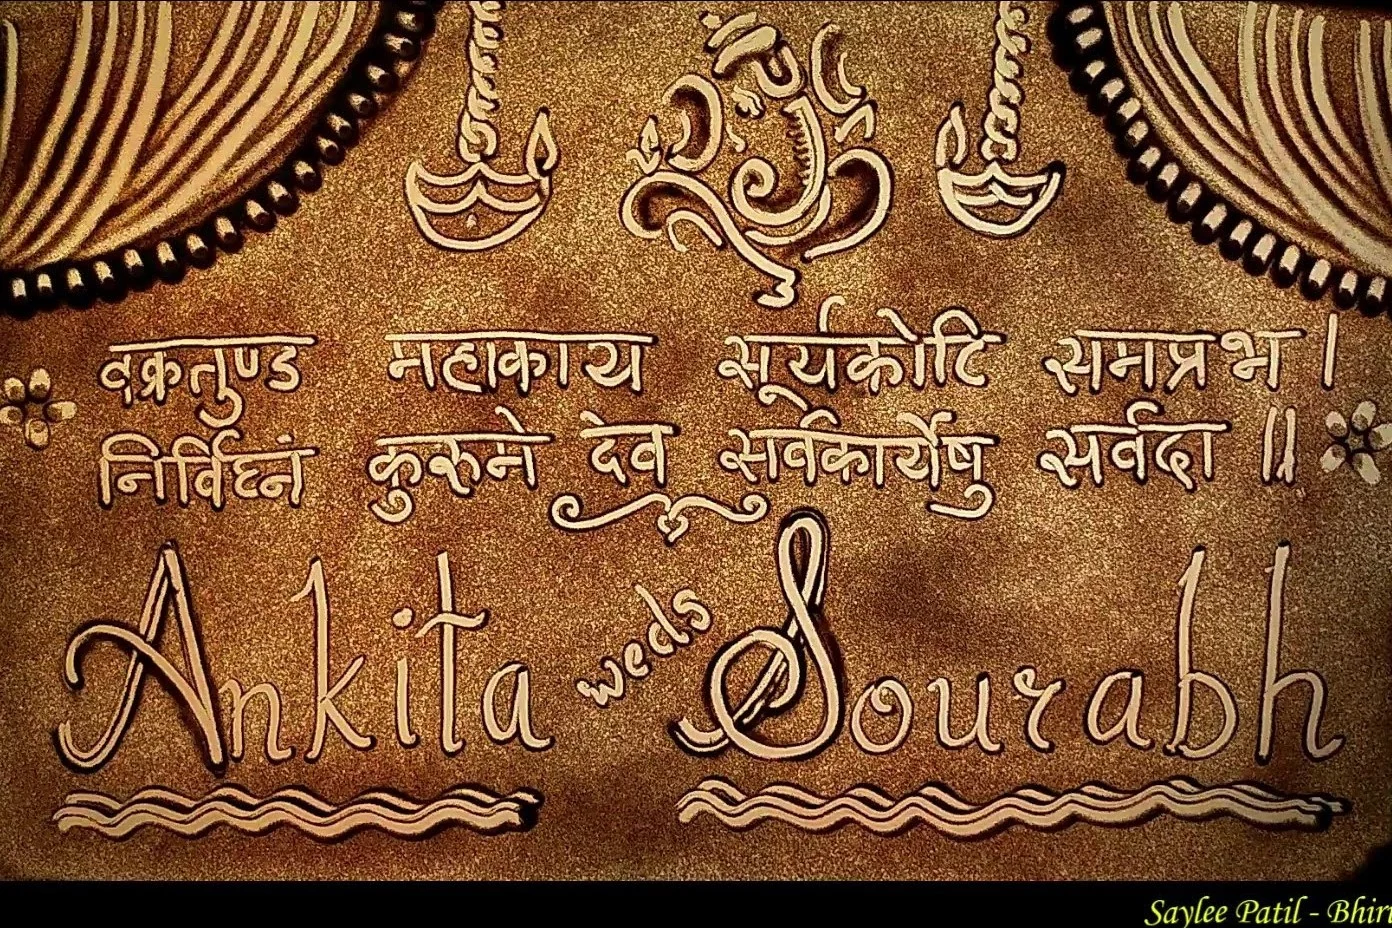 वक्रतुण्ड महाकाय सूर्यकोटि समप्रभ ।
निर्विघ्नं कुरुमे देव सर्वकार्येषु सर्वदा ॥
Ankita weds Sourabh
Saylee Patil -